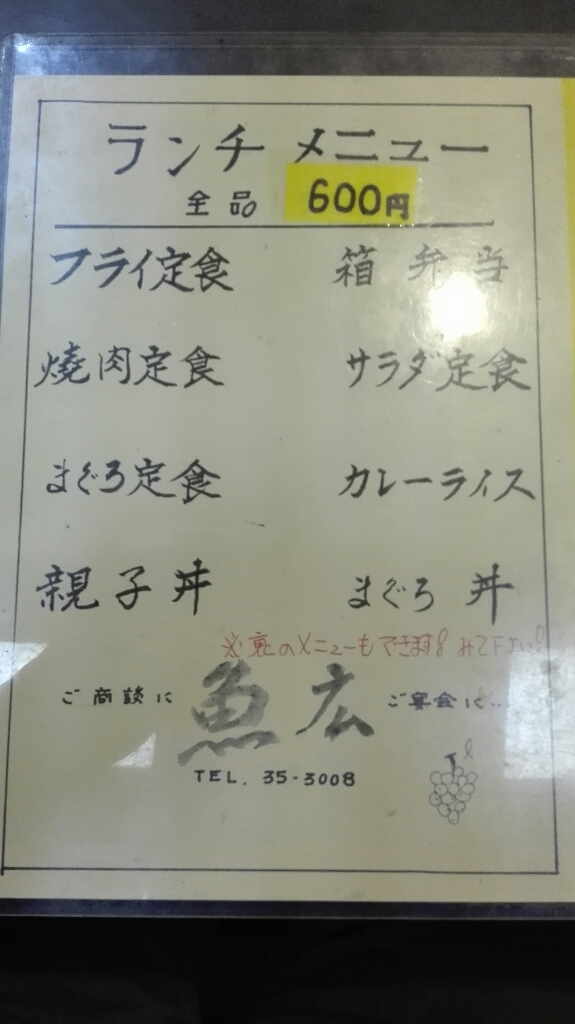 ランチ メニュー
全品 600円
フライ定食 箱弁当
燒肉定食 サラダ定食
まぐろ定食 カレーライス
親子丼 まぐろ丼
※裏のメニューもできます! みて下さい!
ご商談に 魚広 ご宴会に...
TEL. 35-3008